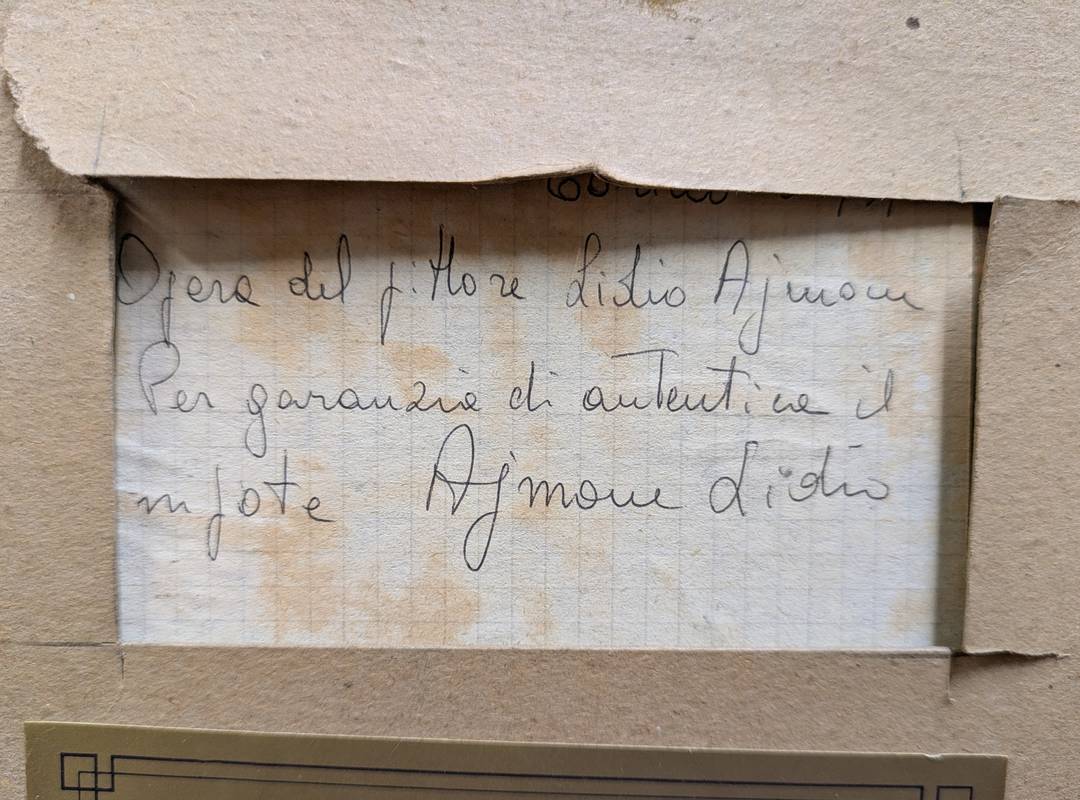 Opera del pittore Lidio Ajmone
Per garanzia di autentica il
nipote Ajmone Lidio